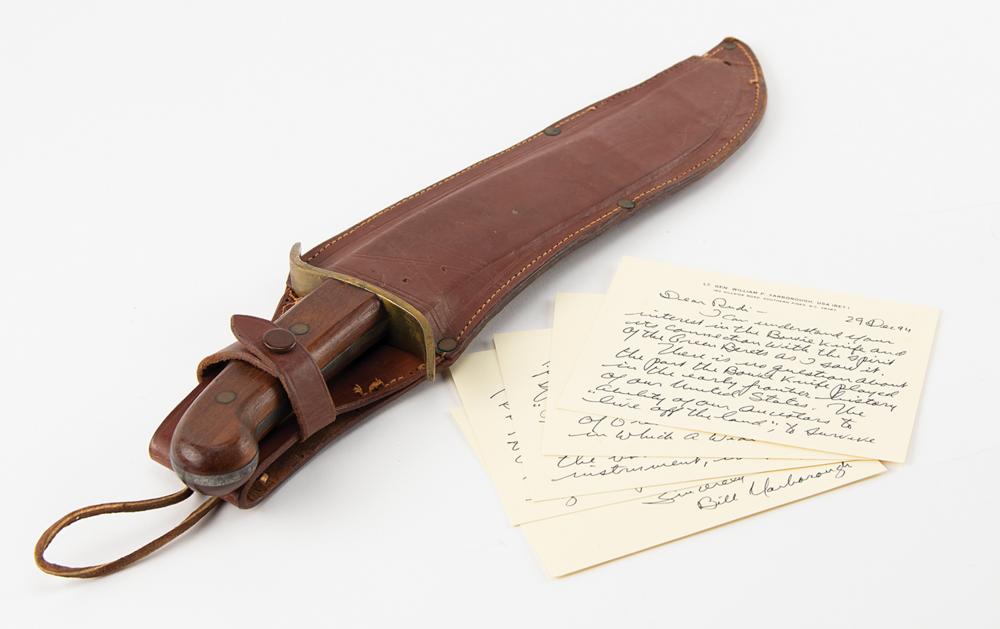 LT. GEN. WILLIAM P. YARBOROUGH, USA (RET.)
Dear Rudi —
29 Dec 94
I can understand your
interest in the Bowie Knife and
its connection with the spirit
of the Green Berets as I saw it.
There is no question about
the part the Bowie Knife played
in the early frontier history
of our United States. The
ability of our ancestors to
"live off the land", to survive
in which a
the
instrument,
Sincerely
Bill Yarborough